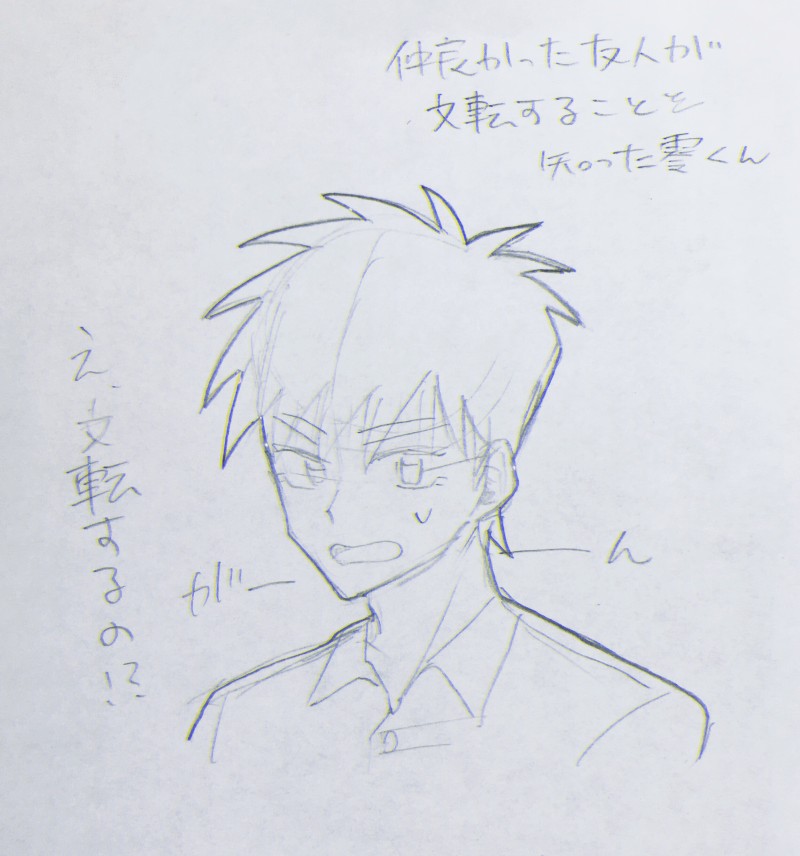 仲良かった友人が
文転することを
知った零くん
え、文転するの!?
がーん